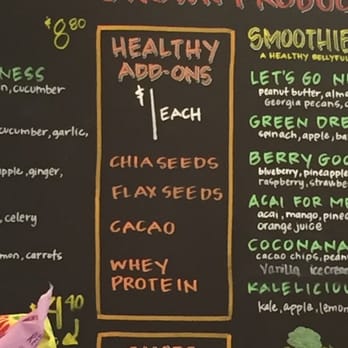 $8.80
HEALTHY
ADD-ONS
$1 EACH
CHIA SEEDS
FLAX SEEDS
CACAO
WHEY
PROTEIN
cucumber
cucumber, garlic,
ginger,
, celery
, carrots
SMOOTHIE
A HEALTHY BELLYFUL
LET'S GO N
peanut butter, alm
Georgia pecans, c
GREEN DRE
spinach, apple, ba
BERRY GOO
blueberry, pineapple
raspberry, strawbe
ACAI FOR ME
acai, mango, pine
orange juice
COCONANA
cacao chips, pean
Vanilla ice cream
KALELICIOU
kale, apple, lemon